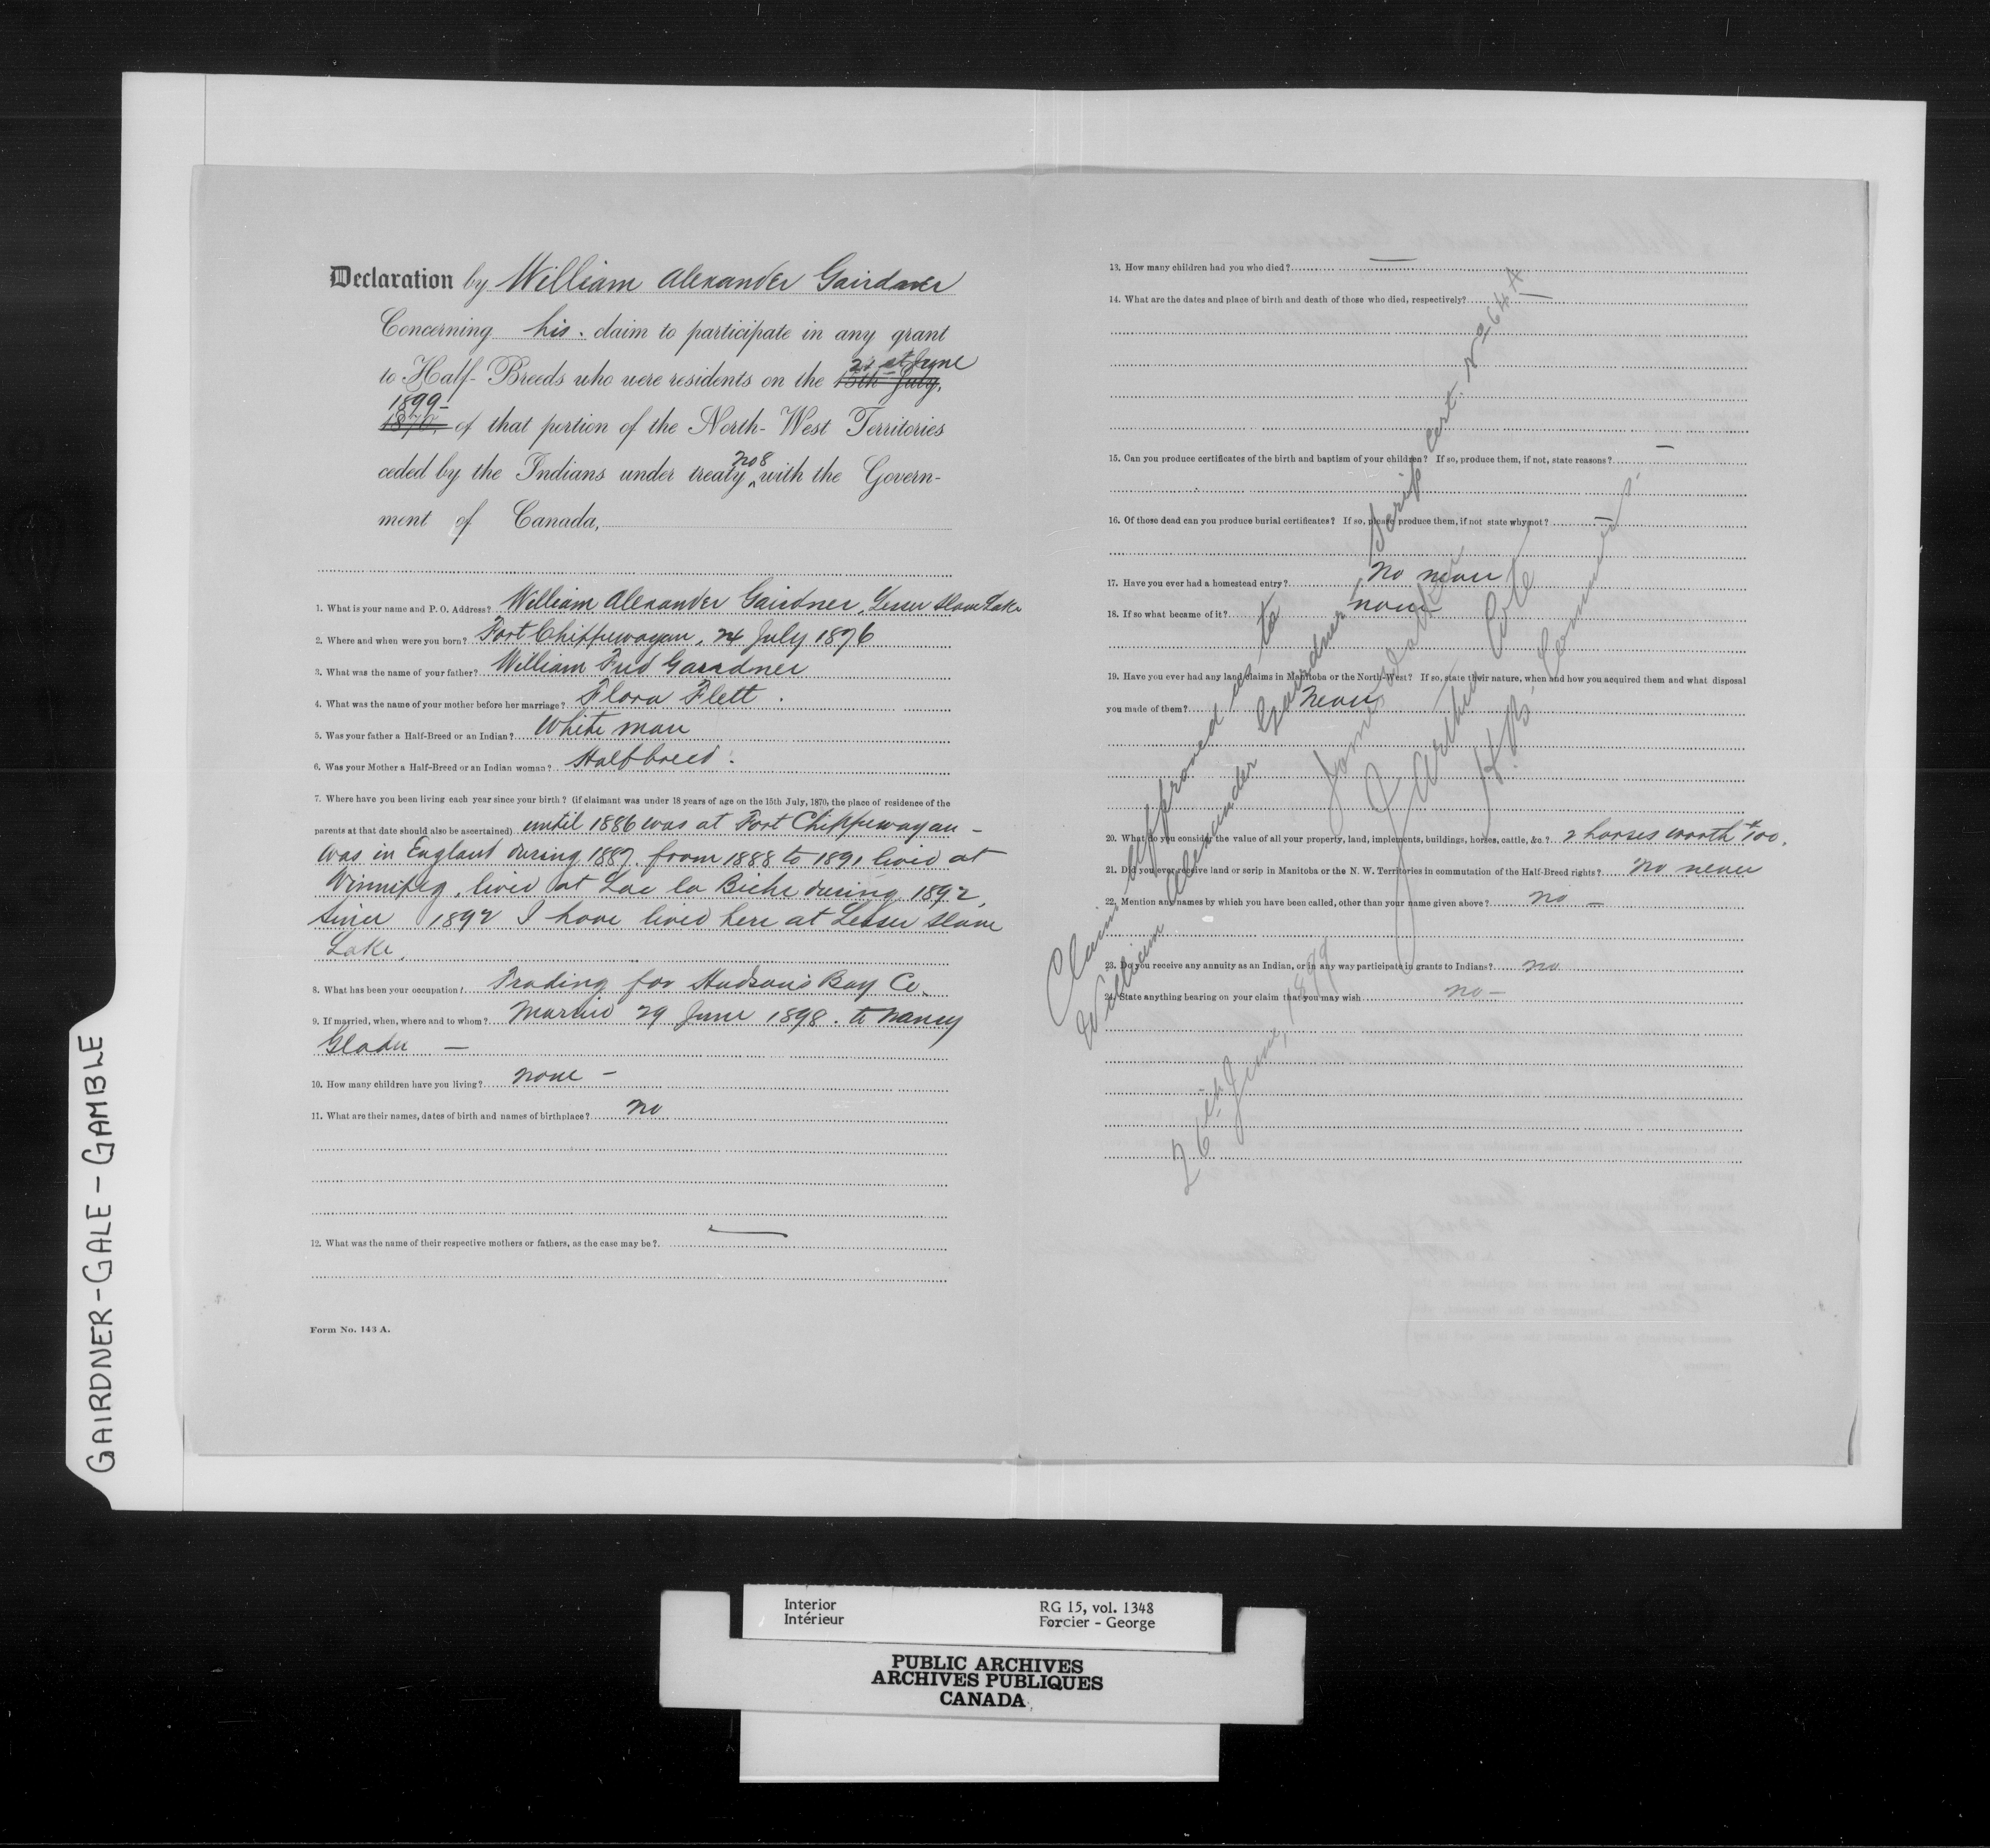 GAIRDNER-GALE-GAMBLE
Declaration by William Alexander Gairdner
Concerning his claim to participate in any grant
to Half-Breeds who were residents on the 15th July, 21st June
1870, 1899 of that portion of the North-West Territories
ceded by the Indians under treaty no 8 with the Govern-
ment of Canada,
1. What is your name and P. O. Address? William Alexander Gairdner, Lesser Slave Lake
2. Where and when were you born? Fort Chippewayan, 24 July 1876
3. What was the name of your father? William Fred Gairdner
4. What was the name of your mother before her marriage? Flora Flett.
5. Was your father a Half-Breed or an Indian? White man
6. Was your Mother a Half-Breed or an Indian woman? Halfbreed.
7. Where have you been living each year since your birth? (if claimant was under 18 years of age on the 15th July, 1870, the place of residence of the
parents at that date should also be ascertained) until 1886 was at Fort Chippewayan -
was in England during 1887. from 1888 to 1891 lived at
Winnipeg, lived at Lac la Biche during 1892,
Since 1892 I have lived here at Lesser Slave
Lake.
8. What has been your occupation? Trading for Hudson's Bay Co.
9. If married, when, where and to whom? Married 29 June 1898. to Nancy
Gladu —
10. How many children have you living? none -
11. What are their names, dates of birth and names of birthplace? no
12. What was the name of their respective mothers or fathers, as the case may be? —
Form No. 143 A.
13. How many children had you who died? —
14. What are the dates and place of birth and death of those who died, respectively? —
15. Can you produce certificates of the birth and baptism of your children? If so, produce them, if not, state reasons? —
16. Of those dead can you produce burial certificates? If so, please produce them, if not state why not? —
17. Have you ever had a homestead entry? No never
18. If so what became of it? none
19. Have you ever had any land claims in Manitoba or the North-West? If so, state their nature, when and how you acquired them and what disposal
you made of them? Never
20. What do you consider the value of all your property, land, implements, buildings, horses, cattle, &c.? 2 horses worth $100.
21. Did you ever receive land or scrip in Manitoba or the N. W. Territories in commutation of the Half-Breed rights? No never
22. Mention any names by which you have been called, other than your name given above? no -
23. Do you receive any annuity as an Indian, or in any way participate in grants to Indians? no
24. State anything bearing on your claim that you may wish no -
Claim approved as to
William Alexander Gairdner, Scrip cert. No 264 A
James Walker
J. Arthur Coté
H. B. Commrs.
26th June, 1899
Interior RG 15, vol. 1348
Intérieur Forcier - George
PUBLIC ARCHIVES
ARCHIVES PUBLIQUES
CANADA